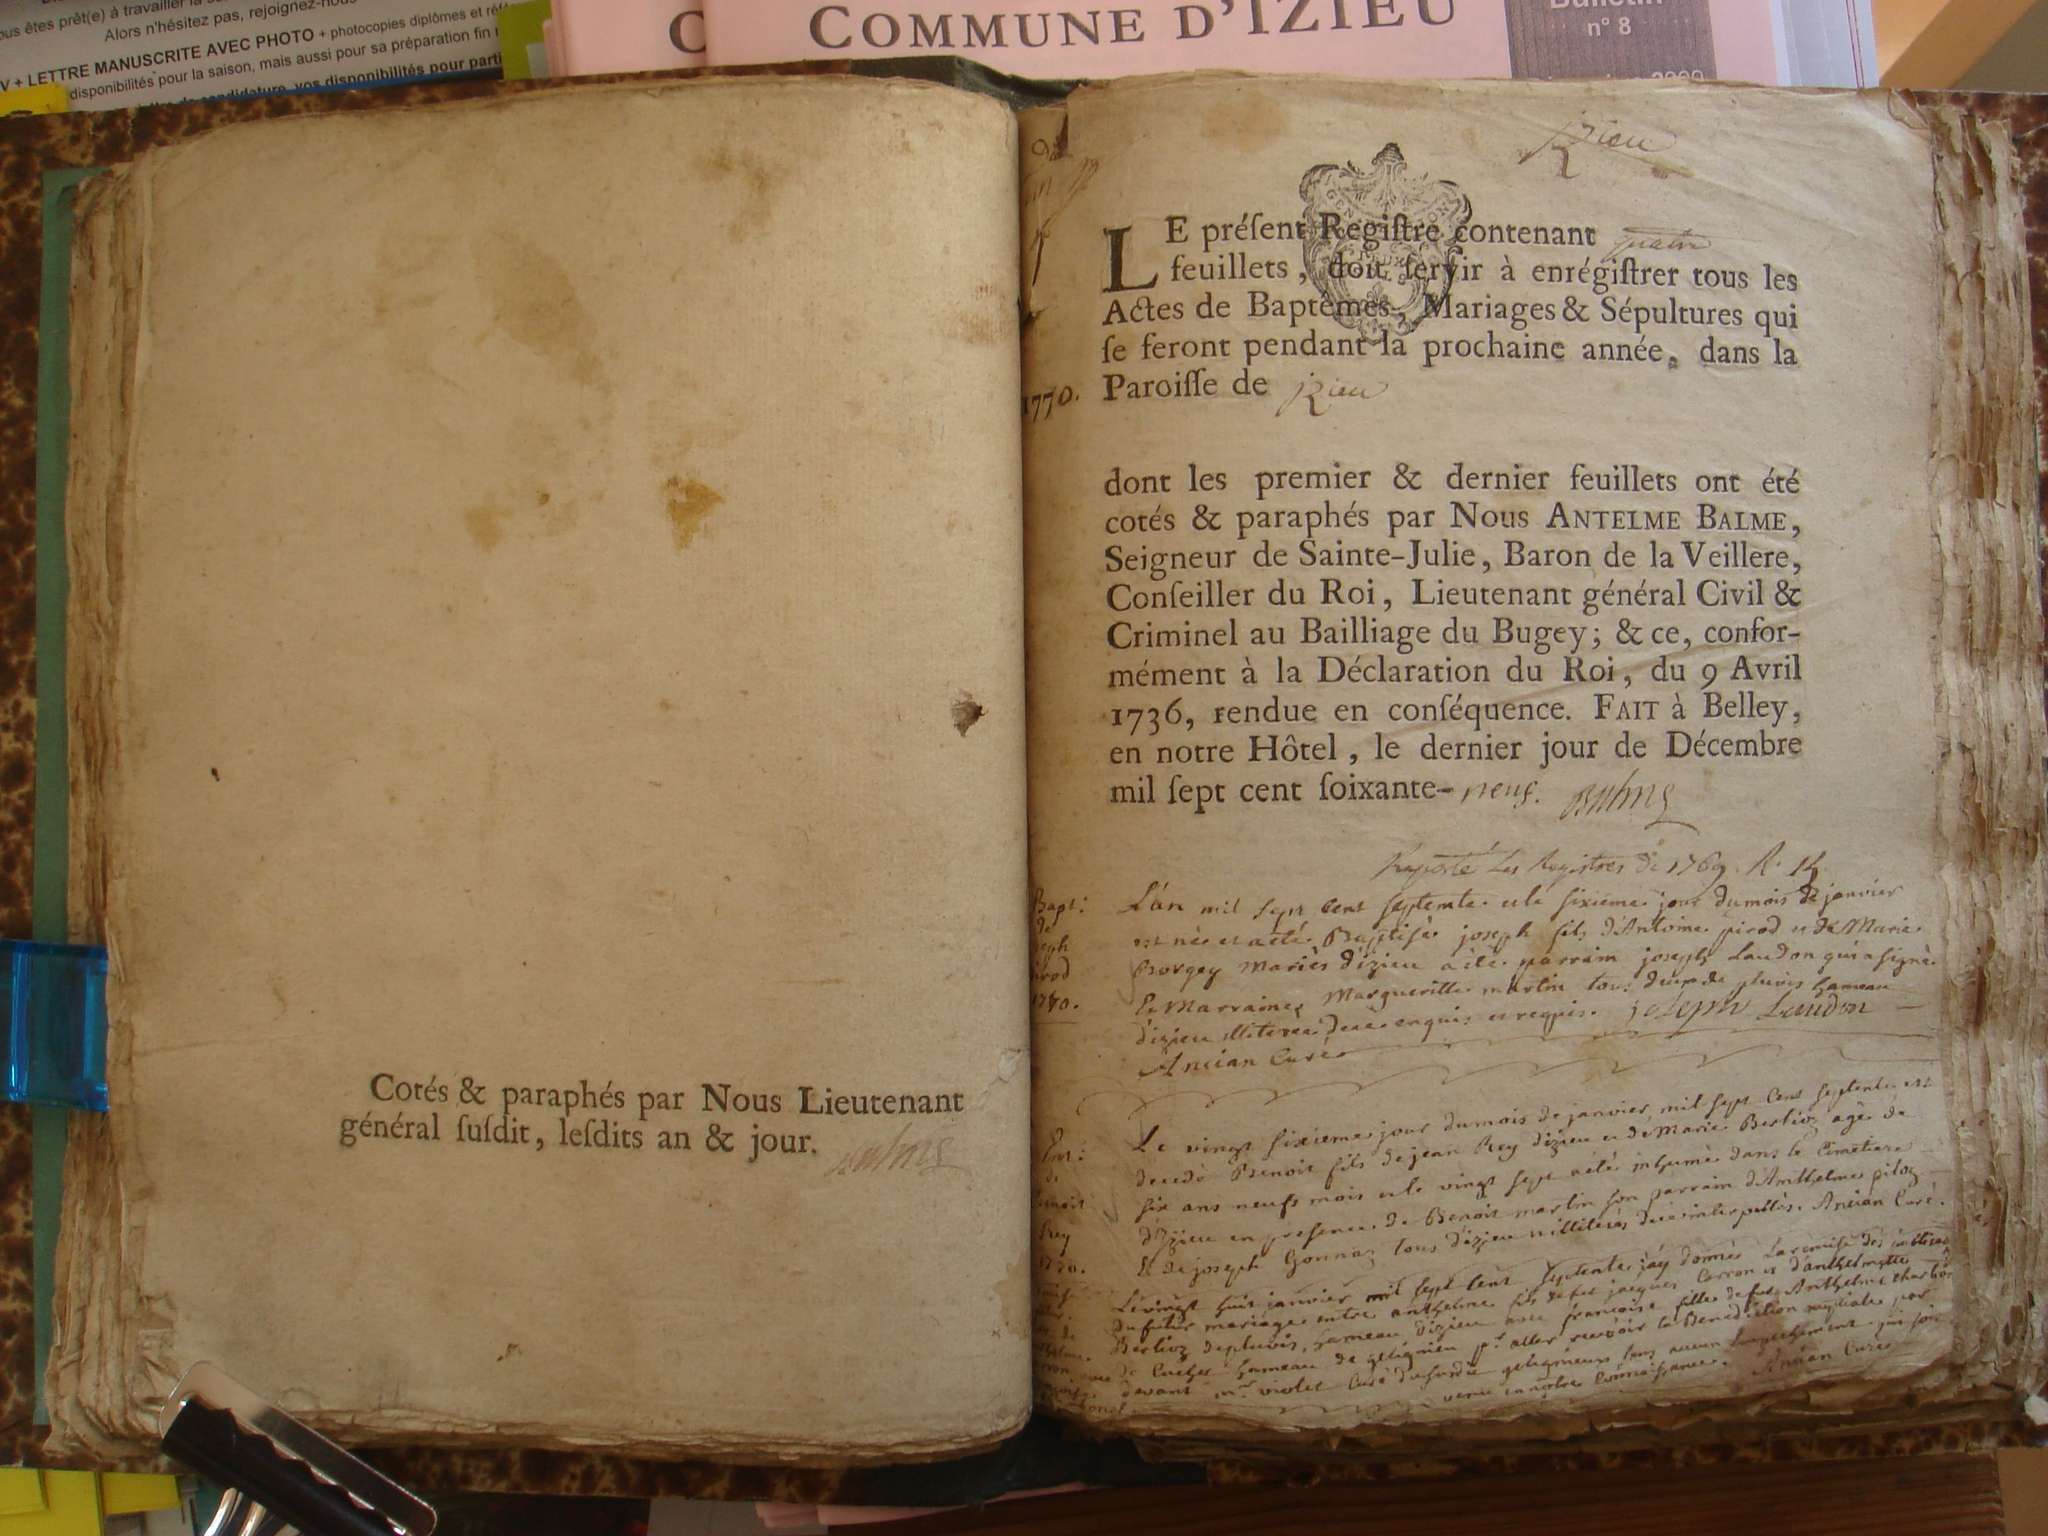 ous êtes prêt(e) à travailler la
Alors n'hésitez pas, rejoignez-nous
V + LETTRE MANUSCRITE AVEC PHOTO + photocopies diplômes et
disponibilités pour la saison, mais aussi pour sa préparation fin
candidature, vos disponibilités pour parti
C
COMMUNE D'IZIEU
Bulletin
n° 8
Cotés & paraphés par Nous Lieutenant
général ſuſdit, leſdits an & jour.
Balme
jzieu
LE préſent Regiſtre contenant quatre
feuillets, doit ſervir à enrégiſtrer tous les
Actes de Baptêmes, Mariages & Sépultures qui
ſe feront pendant la prochaine année, dans la
1770. Paroiſſe de jzieu
dont les premier & dernier feuillets ont été
cotés & paraphés par Nous ANTELME BALME,
Seigneur de Sainte-Julie, Baron de la Veillere,
Conſeiller du Roi, Lieutenant général Civil &
Criminel au Bailliage du Bugey; & ce, confor-
mément à la Déclaration du Roi, du 9 Avril
1736, rendue en conſéquence. FAIT à Belley,
en notre Hôtel, le dernier jour de Décembre
mil ſept cent ſoixante-neuf. Balme
Les Registres de 1769
Bapt:
de
seph
irod
1770.
L'an mil sept cent septente et le sixieme jour du mois de janvier
est né et a eté Baptisé joseph fils d'Antoine pirod et de Marie
Borgey Mariés d'izieu a eté parrain joseph Laudon qui a signé
et Marraine Margueritte martin tous deux de pluvis hameau
d'izieu illiterée de ce enquis et requis. joseph Laudon
Ancian Curé
Ent:
de
benoit
Rey
1770.
Le vingt sixieme jour du mois de janvier mil sept cent septente est
decedé Benoit fils de jean Rey d'izieu et de Marie Berlioz agé de
six ans neufs mois et le vingt sept a eté inhumé dans le Cimetiere
d'izieu en presence de Benoit martin son parrain d'Anthelme pitoz
& de joseph Gonnaz tous d'izieu illiterés de ce interpellés. Ancian Curé.
Le vingt huit janvier mil sept cent septente j'ay donné La remise des
du futur mariage entre anthelme fils de feu jacques Carron et d'anthelmette
Berlioz de pluvis, hameau d'izieu avec francoise fille de feu Anthelme
de Cuchet hameau de gelignieu pr. aller recevoir la Benediction nuptiale par
devant mr. violet Curé dudit gelignieux sans aucun Empechement qui soit
venu en notre Connoissance. Ancian Curé